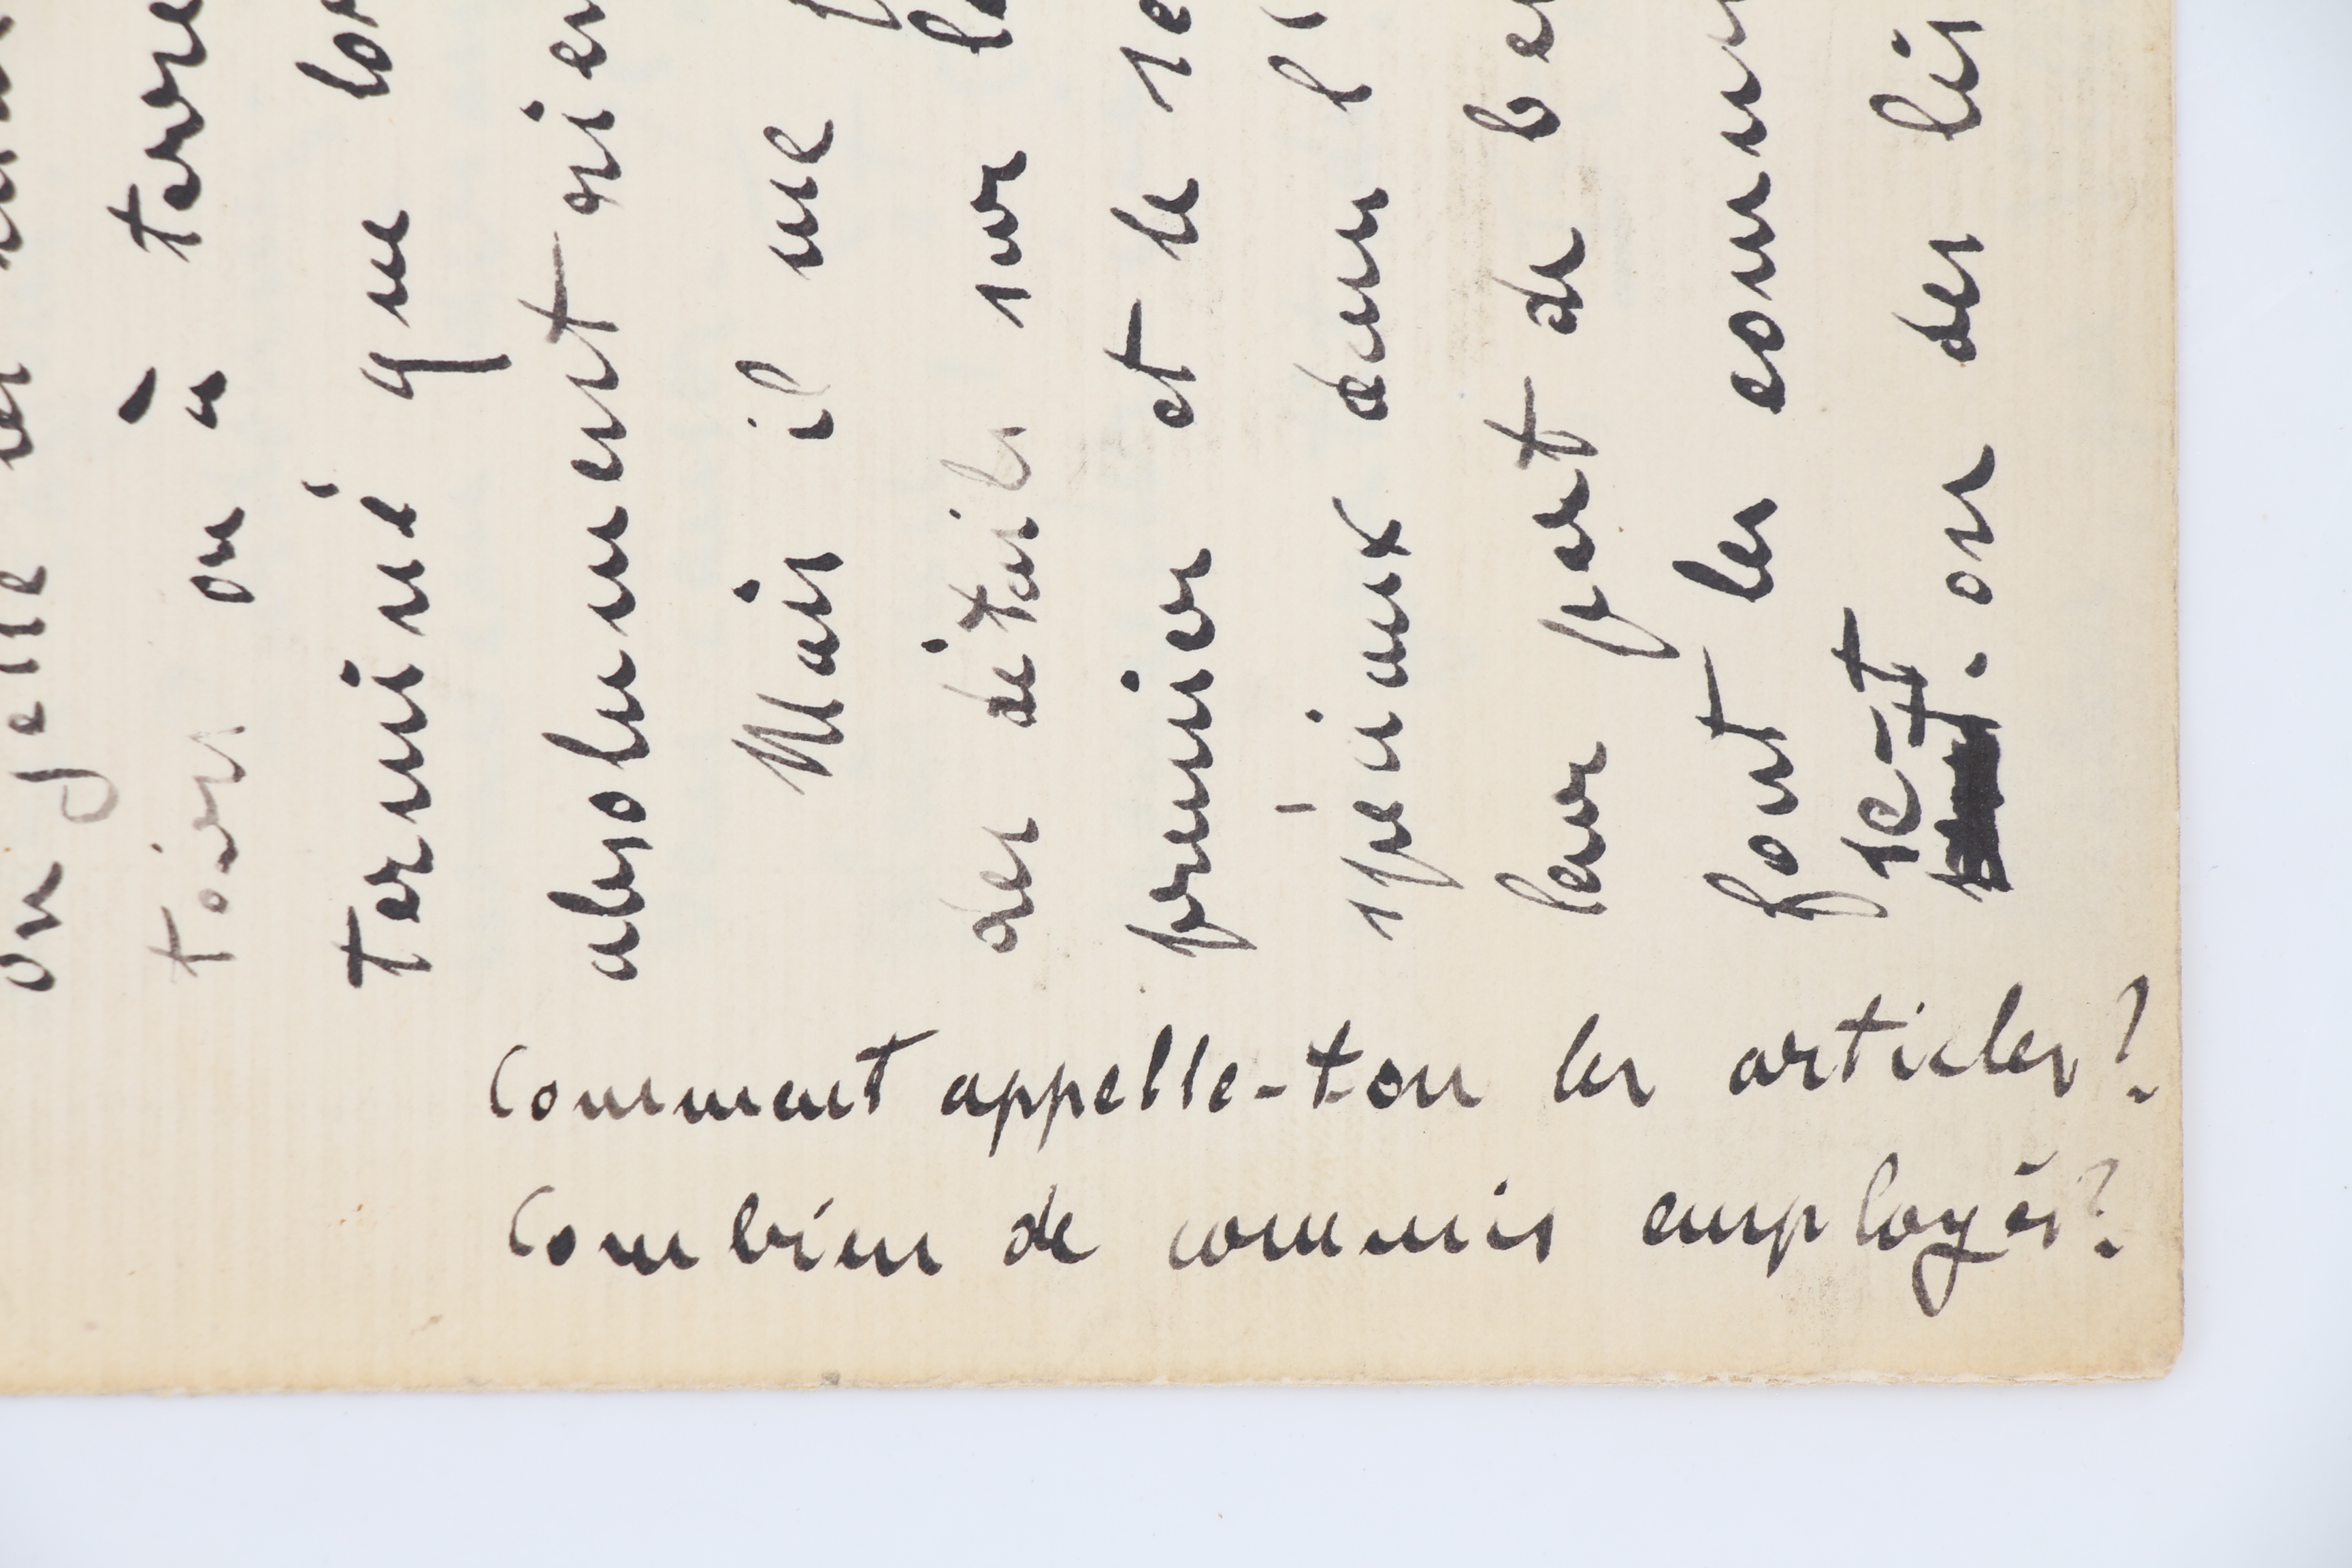 on jette
toirs ou à terre
terminé que lor
absolument rien
Mais il me
des détails sur le
premier et le se
spéciaux dans l'
leur part de bé
font les commu
se-t-on des lis
Comment appelle-ton les articles?
Combien de commis employés?